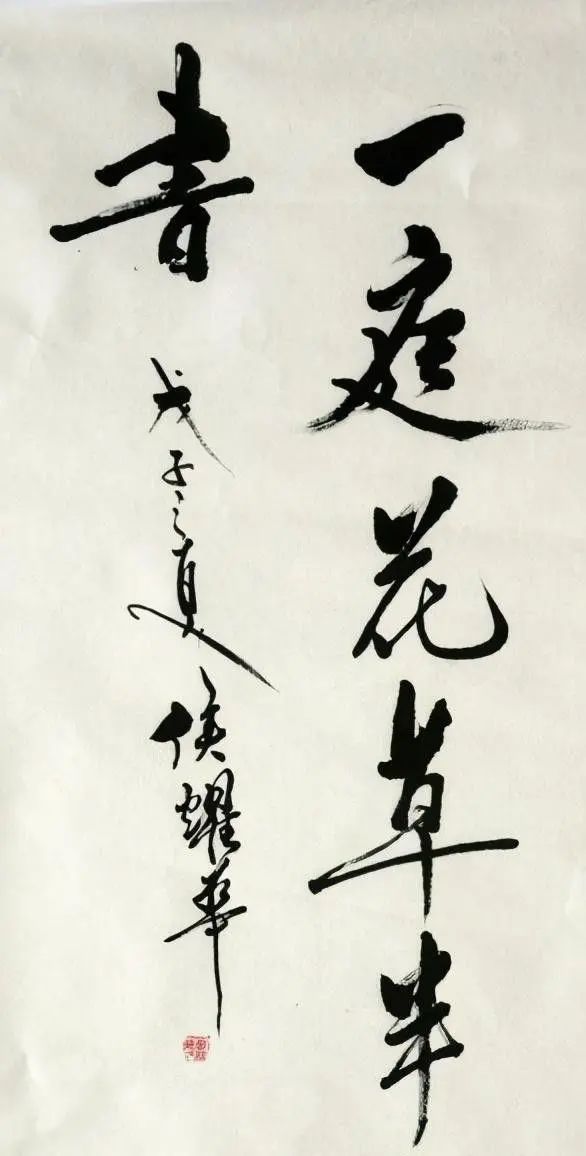 一庭花草半
書 戊子之夏 侯耀華